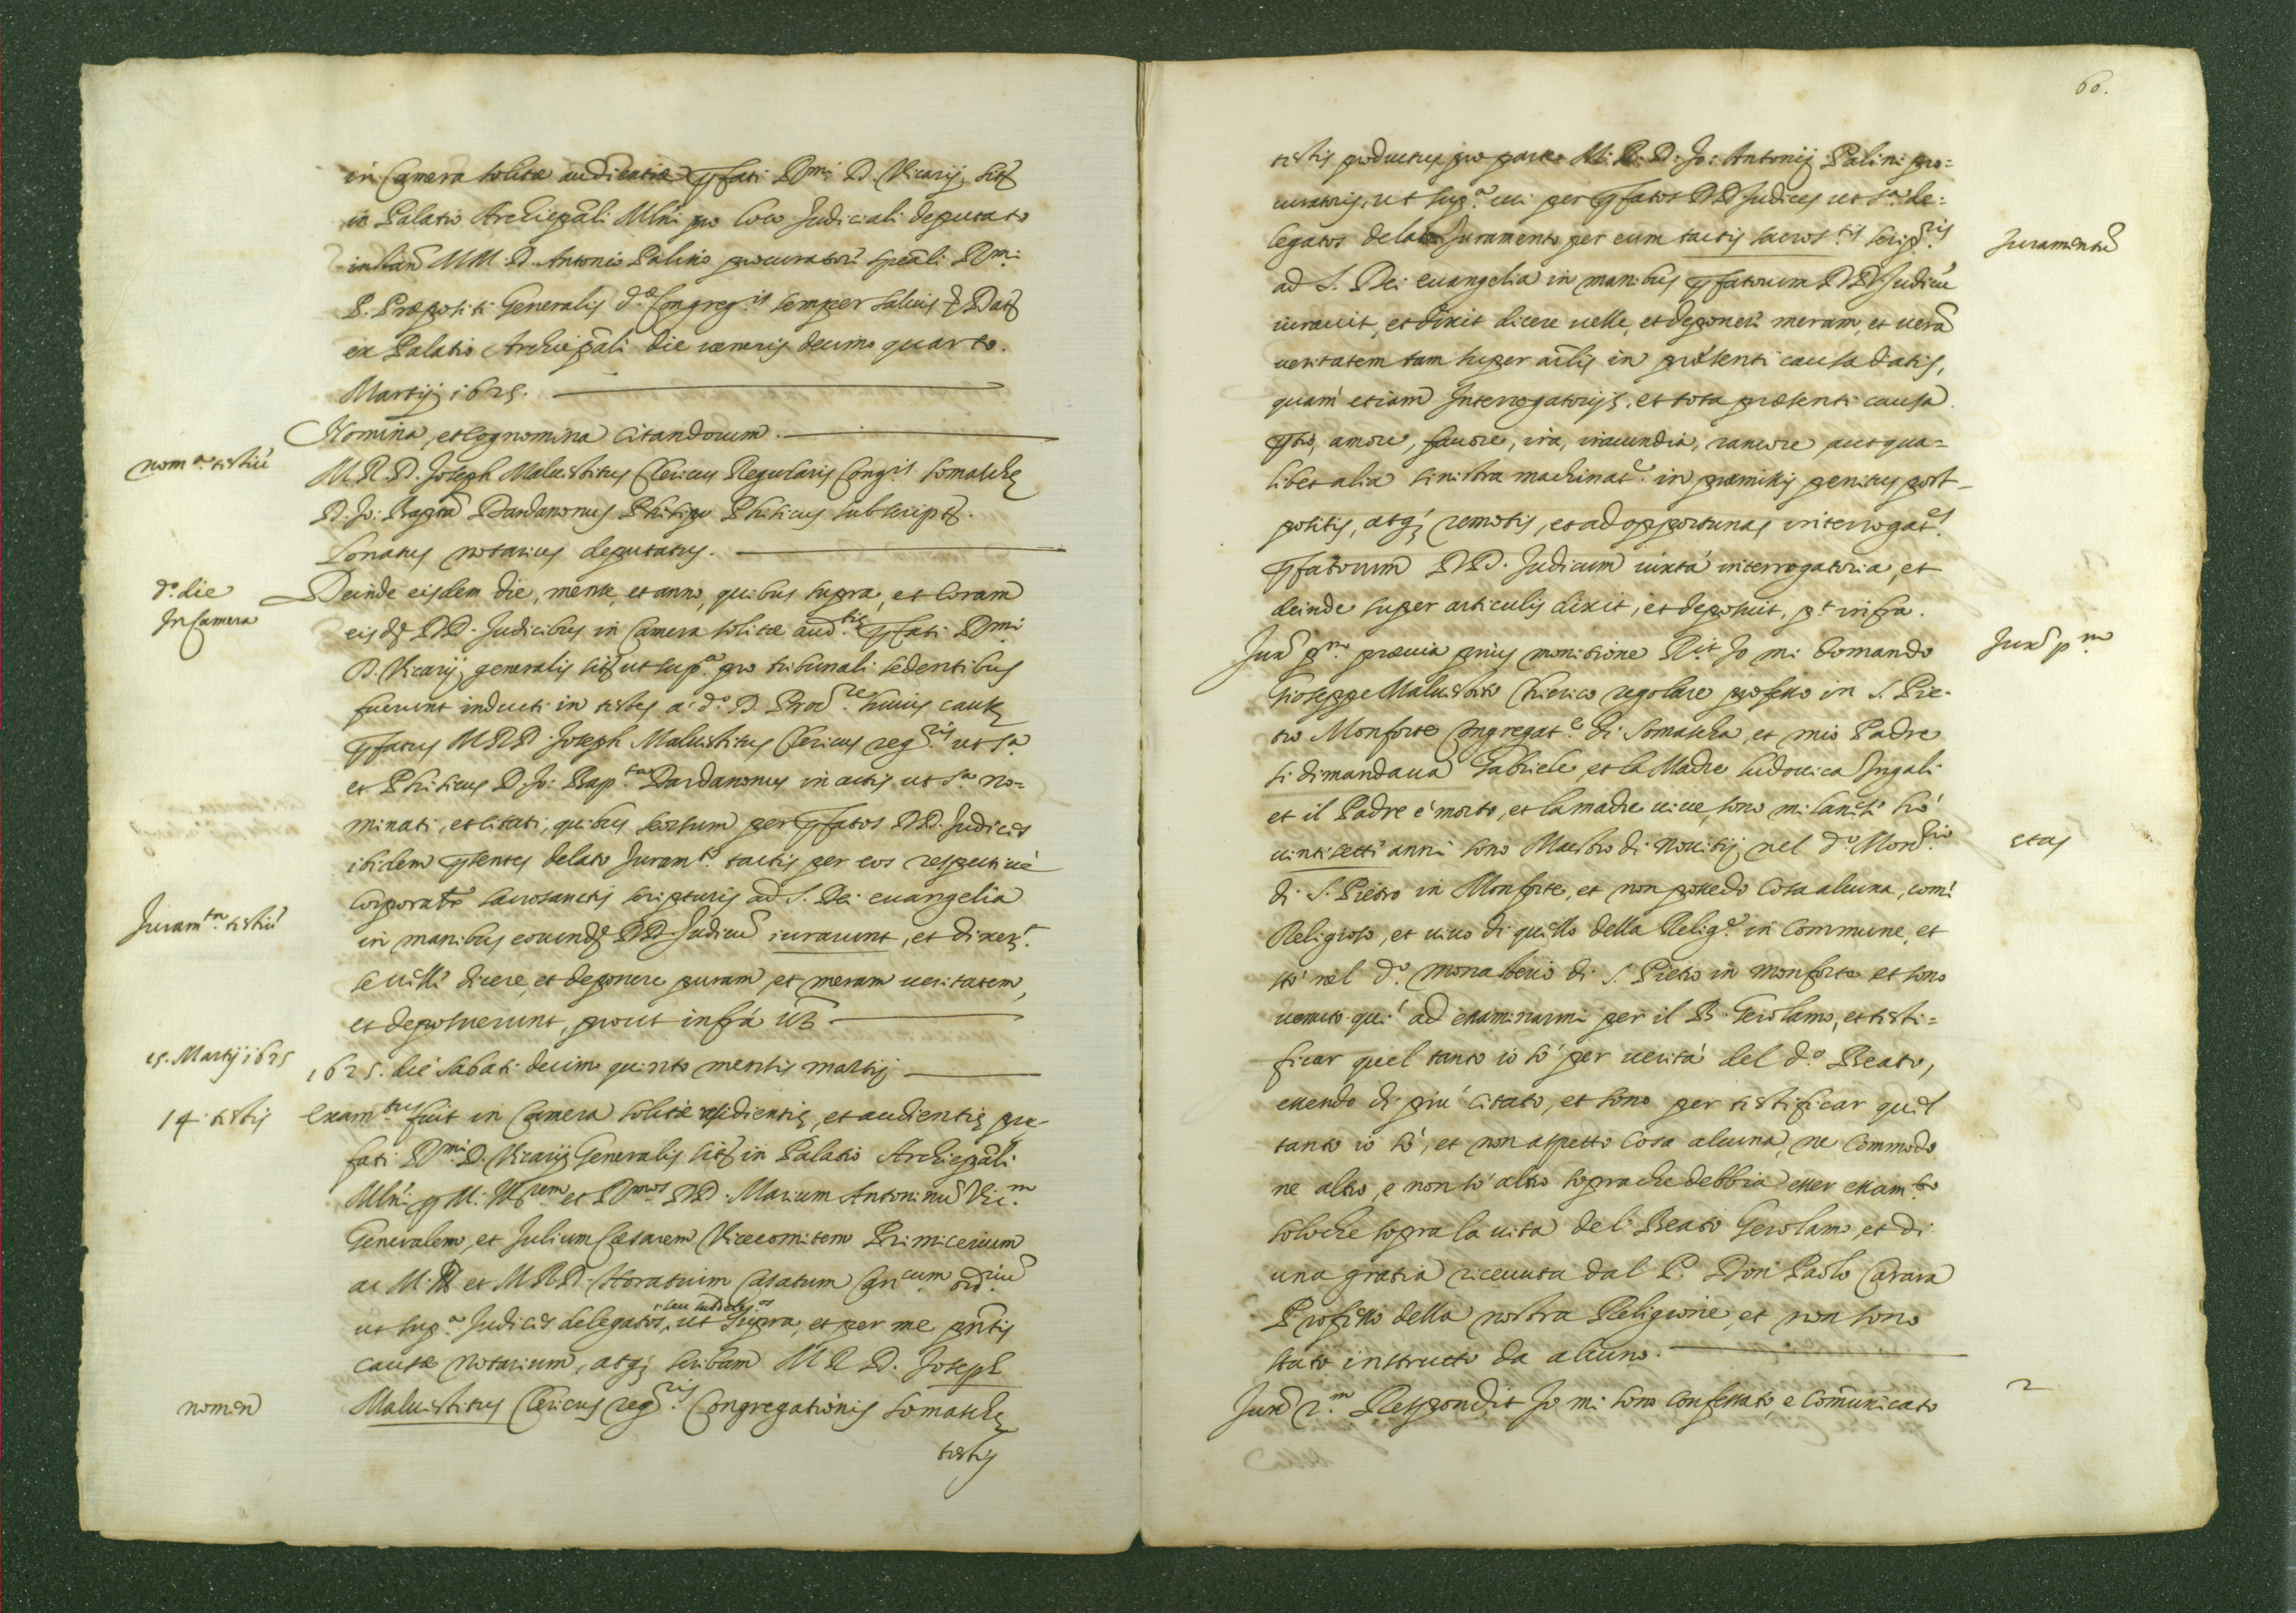 in Camera solitæ audientiæ pfati Rmi D. Vicarij, sitæ
in Palatio Archiepāli Mlni pro loco Judiciali deputato
instan M.M. D. Antonio Palino procuratori speāli Rmi
P. Præpositi Generalis dæ Congreg.is semper salvis & Dat
ex Palatio Archiepāli die veneris decimo quarto.
Martij 1625.
Nomina, et cognomina Citandorum.
nom.a testiũ
M.R.D. Joseph Maluestitus Clericus Regularis Cong.is Somaschę
D. Jo: Bapta Dardanonus Phisicus subscript.
Lonatus notarius deputatus.
d.o die
In Camera
Deinde eisdem die, mense, et anno, quibus supra, et Coram
eisd DD. Judicibus in Camera solitæ aud.tiæ pfati Rmi
D. Vicarij generalis sit ut sup.a pro tribunali sedentibus
fuerunt inducti in testes a d.o D. Proc.re huius causę
pfatus M.R.D. Joseph Maluestitus Clericus reg.ris ut s.a
et Phisicus D. Jo: Bap.ta Dardanonus in actis ut s.a no=
minati, et citati, quibus seorsum per pfatos DD. Judices
ibidem pntes delato Juram.to tactis per eos respectiuè
corporalr̃ sacrosanctis scripturis ad S. Dei euangelia
Juram.tũ testiũ
in manibus eorund DD. Judicũ iurarunt, et dixer.t
se velle dicere, et deponere puram, et meram ueritatem,
et deposuerunt, prout infrà Vz
15. Martij 1625
1625. die Sabati decimo quinto mensis martij
14. testis
Exam.tus fuit in Camera solitæ residentię, et audientię pre-
fati Rmi D. Vicarij Generalis sit in Palatio Archiepāli
Mlni p M. Ill.rem et Rmos DD. Marcum Antoninũ Vic.m
Generalem, et Julium Cæsarem Vicecomitem Primicerium
ac M. Ill et M.R.D. Horatium Casatum Can.cum ord.riũ
ut sup.a Judices delegatos, seu subdeleg.os ut supra, et per me pntis
causæ notarium, atq; scribam M.R.D. Joseph
nomen
Maluestitus Clericus reg.ris Congregationis Somaschę
testis
60.
testis productus pro parte M. R. D. Jo: Antonij Palini pro=
curatoris, ut sup.a cui per pfatos DD Judices ut s.a de=
legatos delato Juramento per eum tactis sacros.tis scrip.ris
Juramentũ
ad S. Dei euangelia in manibus pfatorum DD Judicũ
iurauit, et dixit dicere uelle, et deponere meram, et uerã
ueritatem tam super arlis in præsenti causa datis,
quàm etiam Interrogatorijs, et tota præsenti causa.
odio, amore, fauore, ira, iracundia, rancore aut qua=
libet alia sinistra machinat.e in præmissis penitus post-
positis, atq; remotis, et ad opportunas interrogat.es
pfatorum DD. Judicum iuxta interrogatoria, et
deinde super articulis dixit, et deposuit, p.t infra.
Jux p.m
Jux p.m præuia prius monitione R.it Io mi domando
Gioseppe Maluestito Chierico regolare professo in S. Pie-
tro Monforte Congregat.e di Somascha, et mio Padre
si dimandaua Gabriele, et la Madre Ludouica Ingali
et il Padre è morto, et la madre uiue, sono milanese hò
uintisette anni sono Maestro di Nouitij nel d.o Mon.rio
etas
di S. Pietro in Monforte, et non possedo cosa alcuna, come
Religioso, et uiuo di quello della Relig.e in commune, et
stò nel d.o monasterio di S. Pietro in monforte et sono
uenuto quì ad essaminarmi per il B. Gerolamo, et testi=
ficar quel tanto io sò per uerità del d.o Beato,
essendo di più citato, et sono per testificar quel
tanto io sò, et non aspetto cosa alcuna, ne commodo
ne altro, e non sò altro sopra che debbia esser essam.to
solo che sopra la uita del Beato Gerolamo, et di
una gratia riceuuta dal P. Don Paolo Carara
Professo della nostra Religione, et non sono
stato instructo da alcuno.
Jux 2.m Respondit Io mi sono confessato, e comunicato
2